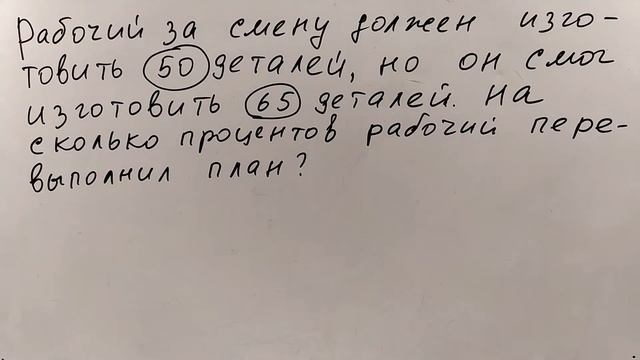 Рабочий за смену должен изго-
товить 50 деталей, но он смог
изготовить 65 деталей. На
сколько процентов рабочий пере-
выполнил план?